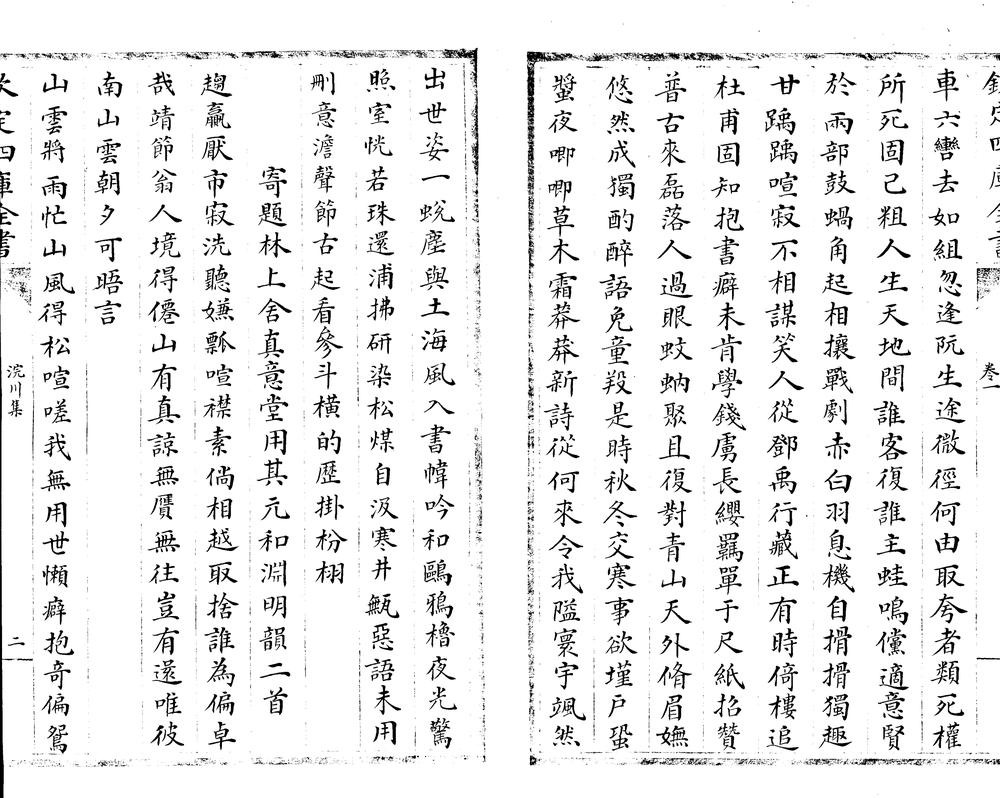 欽定四庫全書
卷一
車六轡去如組忽逢阮生途微徑何由取夸者類死權
所死固已粗人生天地間誰客復誰主蛙鳴儻適意賢
於兩部鼓蝸角起相攘戰劇赤白羽息機自搰搰獨趣
甘踽踽喧寂不相謀笑人從鄧禹行藏正有時倚樓追
杜甫固知抱書癖未肯學錢虜長纓羈單于尺紙招贊
普古來磊落人過眼蚊蚋聚且復對青山天外脩眉嫵
悠然成獨酌醉語免童羖是時秋冬交寒事欲墐戶蛩
螿夜唧唧草木霜莽莽新詩從何來令我隘寰宇颯然
出世姿一蛻塵與土海風入書幃吟和鷗鴉櫓夜光驚
照室恍若珠還浦拂研染松煤自汲寒井甒惡語未用
刪意澹聲節古起看參斗橫的歷掛枌栩
寄題林上舍真意堂用其元和淵明韻二首
趨羸厭市寂洗聽嫌瓢喧襟素倘相越取捨誰為偏卓
哉靖節翁人境得僊山有真諒無贋無往豈有還唯彼
南山雲朝夕可晤言
山雲將雨忙山風得松喧嗟我無用世懶癖抱奇偏鴛
欽定四庫全書
浣川集
二